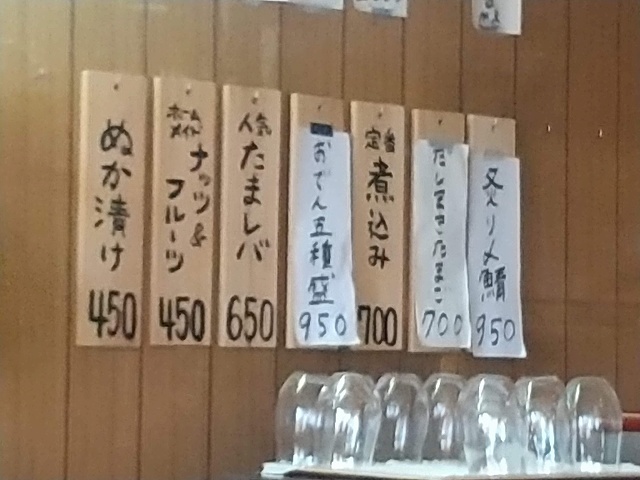 炙り〆鯖
950
だしまきたまご
700
定番
煮込み
700
おでん五種盛
950
人気
たまレバ
650
ホームメイド
ナッツ&フルーツ
450
ぬか漬け
450